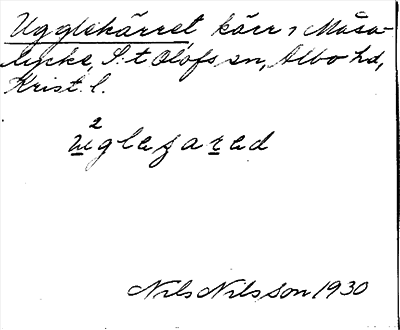 Ugglekärret, kärr, Måsa-
lycke, S:t Olofs sn, Albo hd,
Krist. l.
Nils Nilsson 1930